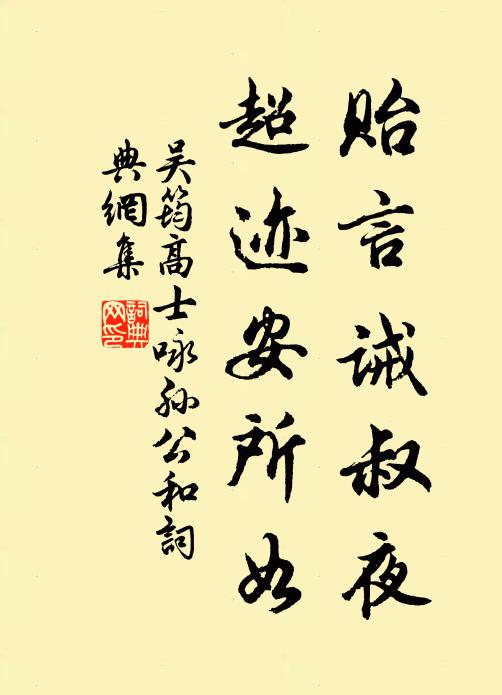 贻言诫叔夜
超迹安所如
吴筠高士咏孙公和词
典網集
詞典
网印